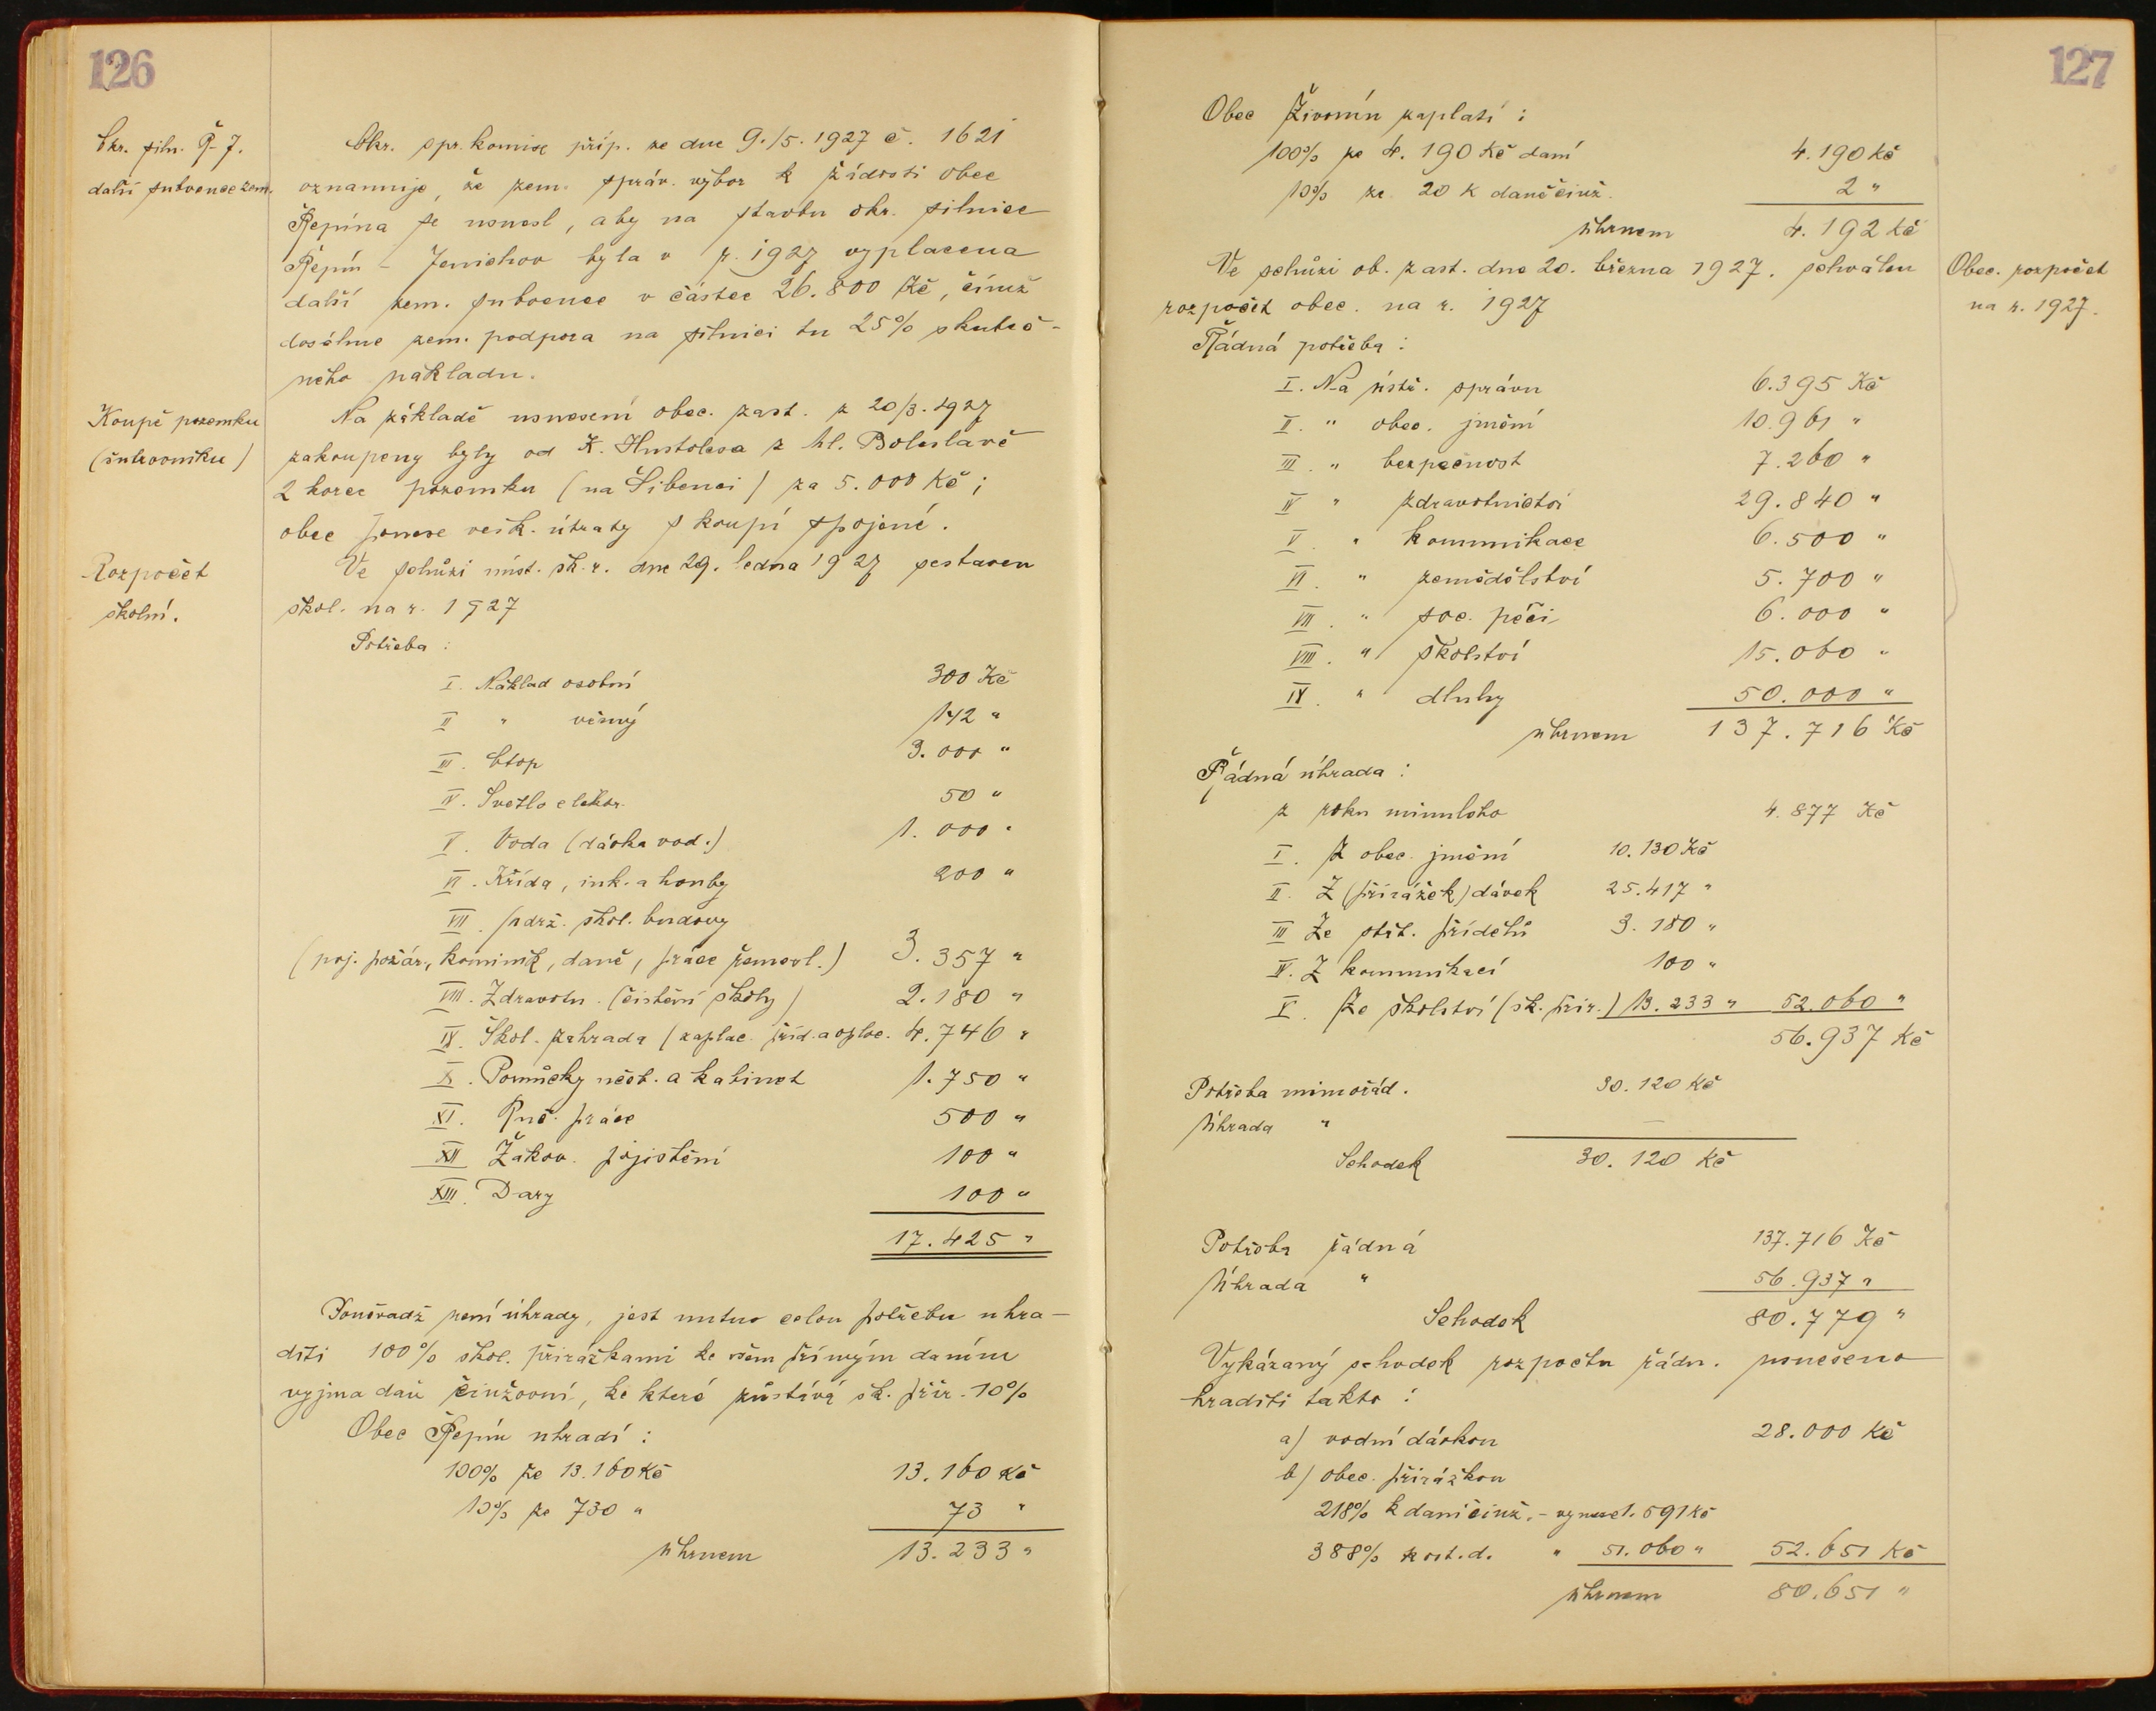 126
Okr. siln. Ř-J.
další subvence zem.
Okr. spr. komise příp. ze dne 9./5. 1927 č. 1621
oznamuje, že zem. správ. výbor k žádosti obce
Řepína se usnesl, aby na stavbu okr. silnice
Řepín - Jenichov byla v r. 1927 vyplacena
další zem. subvence v částce 26.800 Kč, čímž
dosáhne zem. podpora na silnici tu 25% skuteč-
ného nákladu.
Koupě pozemku
(šutrovníku)
Na základě usnesení obec. zast. z 20/3. 1927
zakoupeny byly od K. Hustolesa z Ml. Boleslavě
2 korce pozemku (na Šibenci) za 5.000 Kč;
obec ponese vešk. útraty s koupí spojené.
Rozpočet
školní.
Ve schůzi míst. šk. r. dne 29. ledna 1927 sestaven
škol. na r. 1927
Potřeba :
I. Náklad osobní 300 Kč
II " věcný 142 "
III. Otop 3.000 "
IV. Světlo elektr. 50 "
V. Voda (dávka vod.) 1.000 "
VI. Křída, ink. a houby 200 "
VII. udrž. škol. budovy
(poj. požár., kominík, daně, práce řemesl.) 3.357 "
VIII. Zdravotn. (čistění školy) 2.180 "
IX. Škol. zahrada (zaplac. příd. a oploc. 4.746 "
X. Pomůcky učeb. a kabinet 1.750 "
XI. Ruč. práce 500 "
XII Žákov. pojistění 100 "
XIII. Dary 100 "
17.425 "
Poněvadž není úhrady, jest nutno celou potřebu uhra-
diti 100% škol. přirážkami ke všem přímým daním
vyjma daň činžovní, ke které zůstává šk. přir. 10%
Obec Řepín uhradí :
100% ze 13.160 Kč 13.160 Kč
10% ze 730 " 73 "
úhrnem 13.233 "
127
Obec Živonín zaplatí :
100% ze 4.190 Kč daní 4.190 Kč
10% ze 20 K daně činž. 2 "
úhrnem 4.192 Kč
Obec. rozpočet
na r. 1927.
Ve schůzi ob. zast. dne 20. března 1927. schválen
rozpočet obec. na r. 1927
Řádná potřeba :
I. Na ústř. správu 6.395 Kč
II. " obec. jmění 10.961 "
III. " bezpečnost 7.260 "
IV " zdravotnictví 29.840 "
V. " kommunikace 6.500 "
VI. " zemědělství 5.700 "
VII. " soc. péči 6.000 "
VIII. " školství 15.060 "
IX. " dluhy 50.000 "
úhrnem 137.716 Kč
Řádná úhrada :
z roku minulého 4.877 Kč
I. Z obec. jmění 10.130 Kč
II. Z (přirážek) dávek 25.417 "
III Ze stát. přídělů 3.180 "
IV. Z kommunikací 100 "
V. Ze školství (šk. přir.) 13.233 " 52.060 "
56.937 Kč
Potřeba mimořád. 30.120 Kč
Úhrada " —
Schodek 30.120 Kč
Potřeba řádná 137.716 Kč
Úhrada " 56.937 "
Schodek 80.779 "
Vykázaný schodek rozpočtu řádn. usneseno
hraditi takto :
a) vodní dávkou 28.000 Kč
b) obec. přirážkou
218% k dani činž. - vynesl. 591 Kč
388% k ost. d. " 51.060 " 52.651 Kč
úhrnem 80.651 "